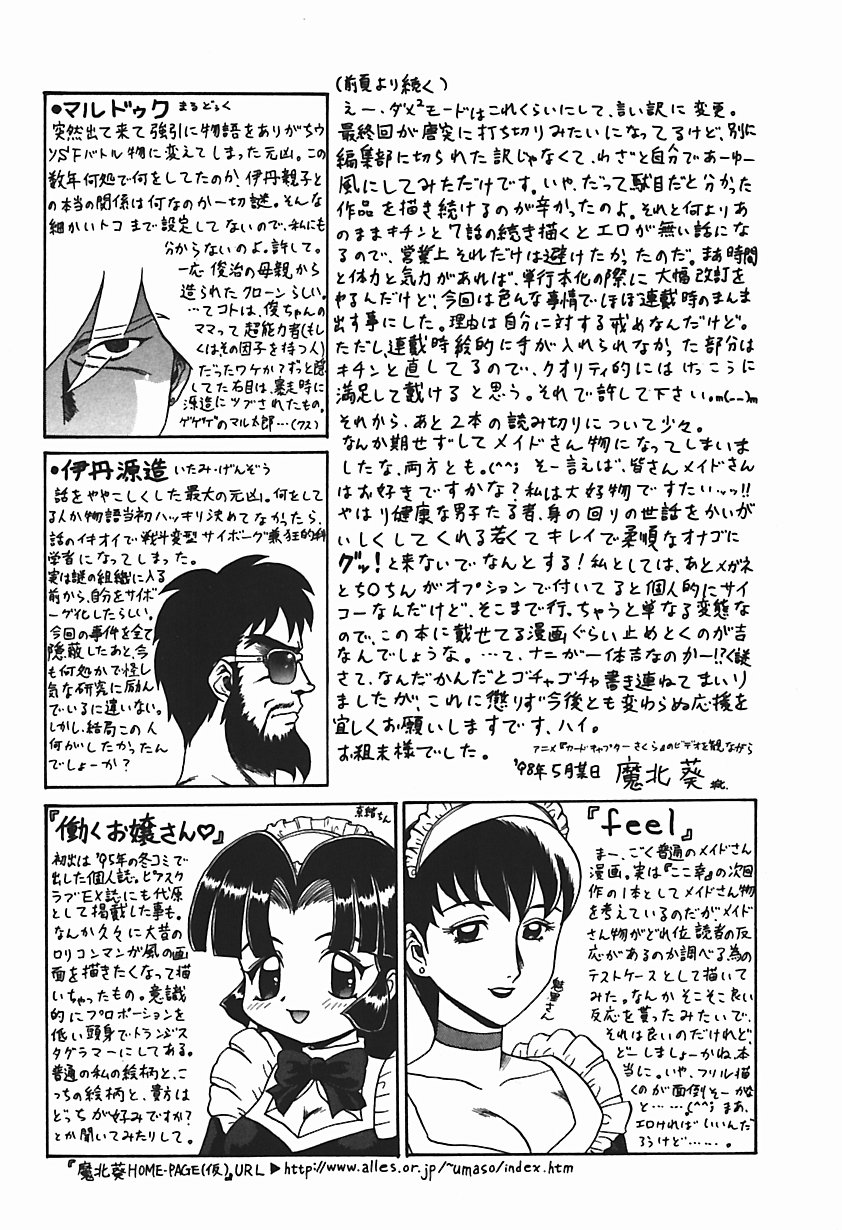 (前頁より続く)
えー、ダメ²モードはこれくらいにして、言い訳に変更。
最終回が唐突に打ち切りみたいになってるけど、別に
編集部に切られた訳じゃなくて、わざと自分であーゆー
風にしてみただけです。いや、だって駄目だと分かった
作品を描き続けるのが辛かったのよ。それと何よりあ
のままキチンと7話の続き描くとエロが無い話にな
るので、営業上それだけは避けたかったのだ。まあ時間
と体力と気力があれば、単行本化の際に大幅改訂を
やるんだけど、今回は色んな事情でほぼ連載時のまんま
出す事にした。理由は自分に対する戒めなんだけど。
ただし、連載時絵的に手が入れられなかった部分は
キチンと直してるので、クオリティ的にはけっこうに
満足して戴けると思う。それで許して下さい。m(__)m
それから、あと2本の読み切りについて少々。
なんか期せずしてメイドさん物になってしまいま
したな、両方とも。(^^; そー言えば、皆さんメイドさん
はお好きですかな?私は大好物ですたいッッ!!
やはり健康な男子たる者、身の回りの世話をかいが
いしくしてくれる若くてキレイで柔順なオナゴに
グッ!と来ないでなんとする!私としては、あとメガネ
とち○ちんがオプションで付いてると個人的にサイ
コーなんだけど、そこまで行っちゃうと単なる変態な
ので、この本に載せてる漫画ぐらい止めとくのが吉
なんでしょうな。…て、ナニが一体吉なのかー!?<謎
さて、なんだかんだとゴチャゴチャ書き連ねてまいり
ましたが、これに懲りず今後とも変わらぬ応援を
宜しくお願いしますです、ハイ。
お粗末様でした。
アニメ『カードキャプターさくら』のビデオを観ながら
'98年5月某日 魔北葵
●マルドゥク まるどぅく
突然出て来て強引に物語をありがちウ
ソSFバトル物に変えてしまった元凶。この
数年何処で何をしてたのか、伊丹親子と
の本当の関係は何なのか一切謎。そんな
細かいトコまで設定してないので、私にも
分からないのよ。許して。
一応俊治の母親から
造られたクローンらしい。
…てコトは、俊ちゃんの
ママって超能力者(もし
くは、その因子を持つ人)
だったワケか?ずっと隠
してた右目は、暴走時に
源造にツブされたもの。
ゲゲゲのマル太郎…(クス)
●伊丹源造 いたみ・げんぞう
話をややこしくした最大の元凶。何をして
る人か物語当初ハッキリ決めてなかったら、
話のイキオイで戦斗変型サイボーグ兼狂的科
学者になってしまった。
実は謎の組織に入る
前から、自分をサイボ
ーグ化したらしい。
今回の事件を全て
隠蔽したあと、今
も何処かで怪し
気な研究に励ん
でいるに違いない。
しかし、結局この人
何がしたかったん
でしょーか?
『働くお嬢さん♡』
初出は'95年の冬コミで
出した個人誌。ピアスク
ラブEX誌にも代原
として掲載した事も。
なんか久々に大昔の
ロリコンマンガ風の画
面を描きたくなって描
いちゃったもの。意識
的にプロポーションを
低い頭身でトランジス
タグラマーにしてある。
普通の私の絵柄と、こ
っちの絵柄と、貴方は
どっちが好みですか?
とか聞いてみたりして。
『feel』
まー、ごく普通のメイドさん
漫画。実は『ここ幸』の次回
作の1本としてメイドさん物
を考えているのだが、メイド
さん物がどれ位読者の反
応があるのか調べる為の
テストケースとして描いて
みた。なんかそこそこ良い
反応を貰ったみたいで、
それは良いのだけれど、
どーしましょーかね、本
当に。いや、フリル描
くのが面倒そーかな
と……(^^; まあ、
エロければいいんだ
ろうけど……。
『魔北葵HOME-PAGE(仮)』URL▶http://www.alles.or.jp/~umaso/index.htm